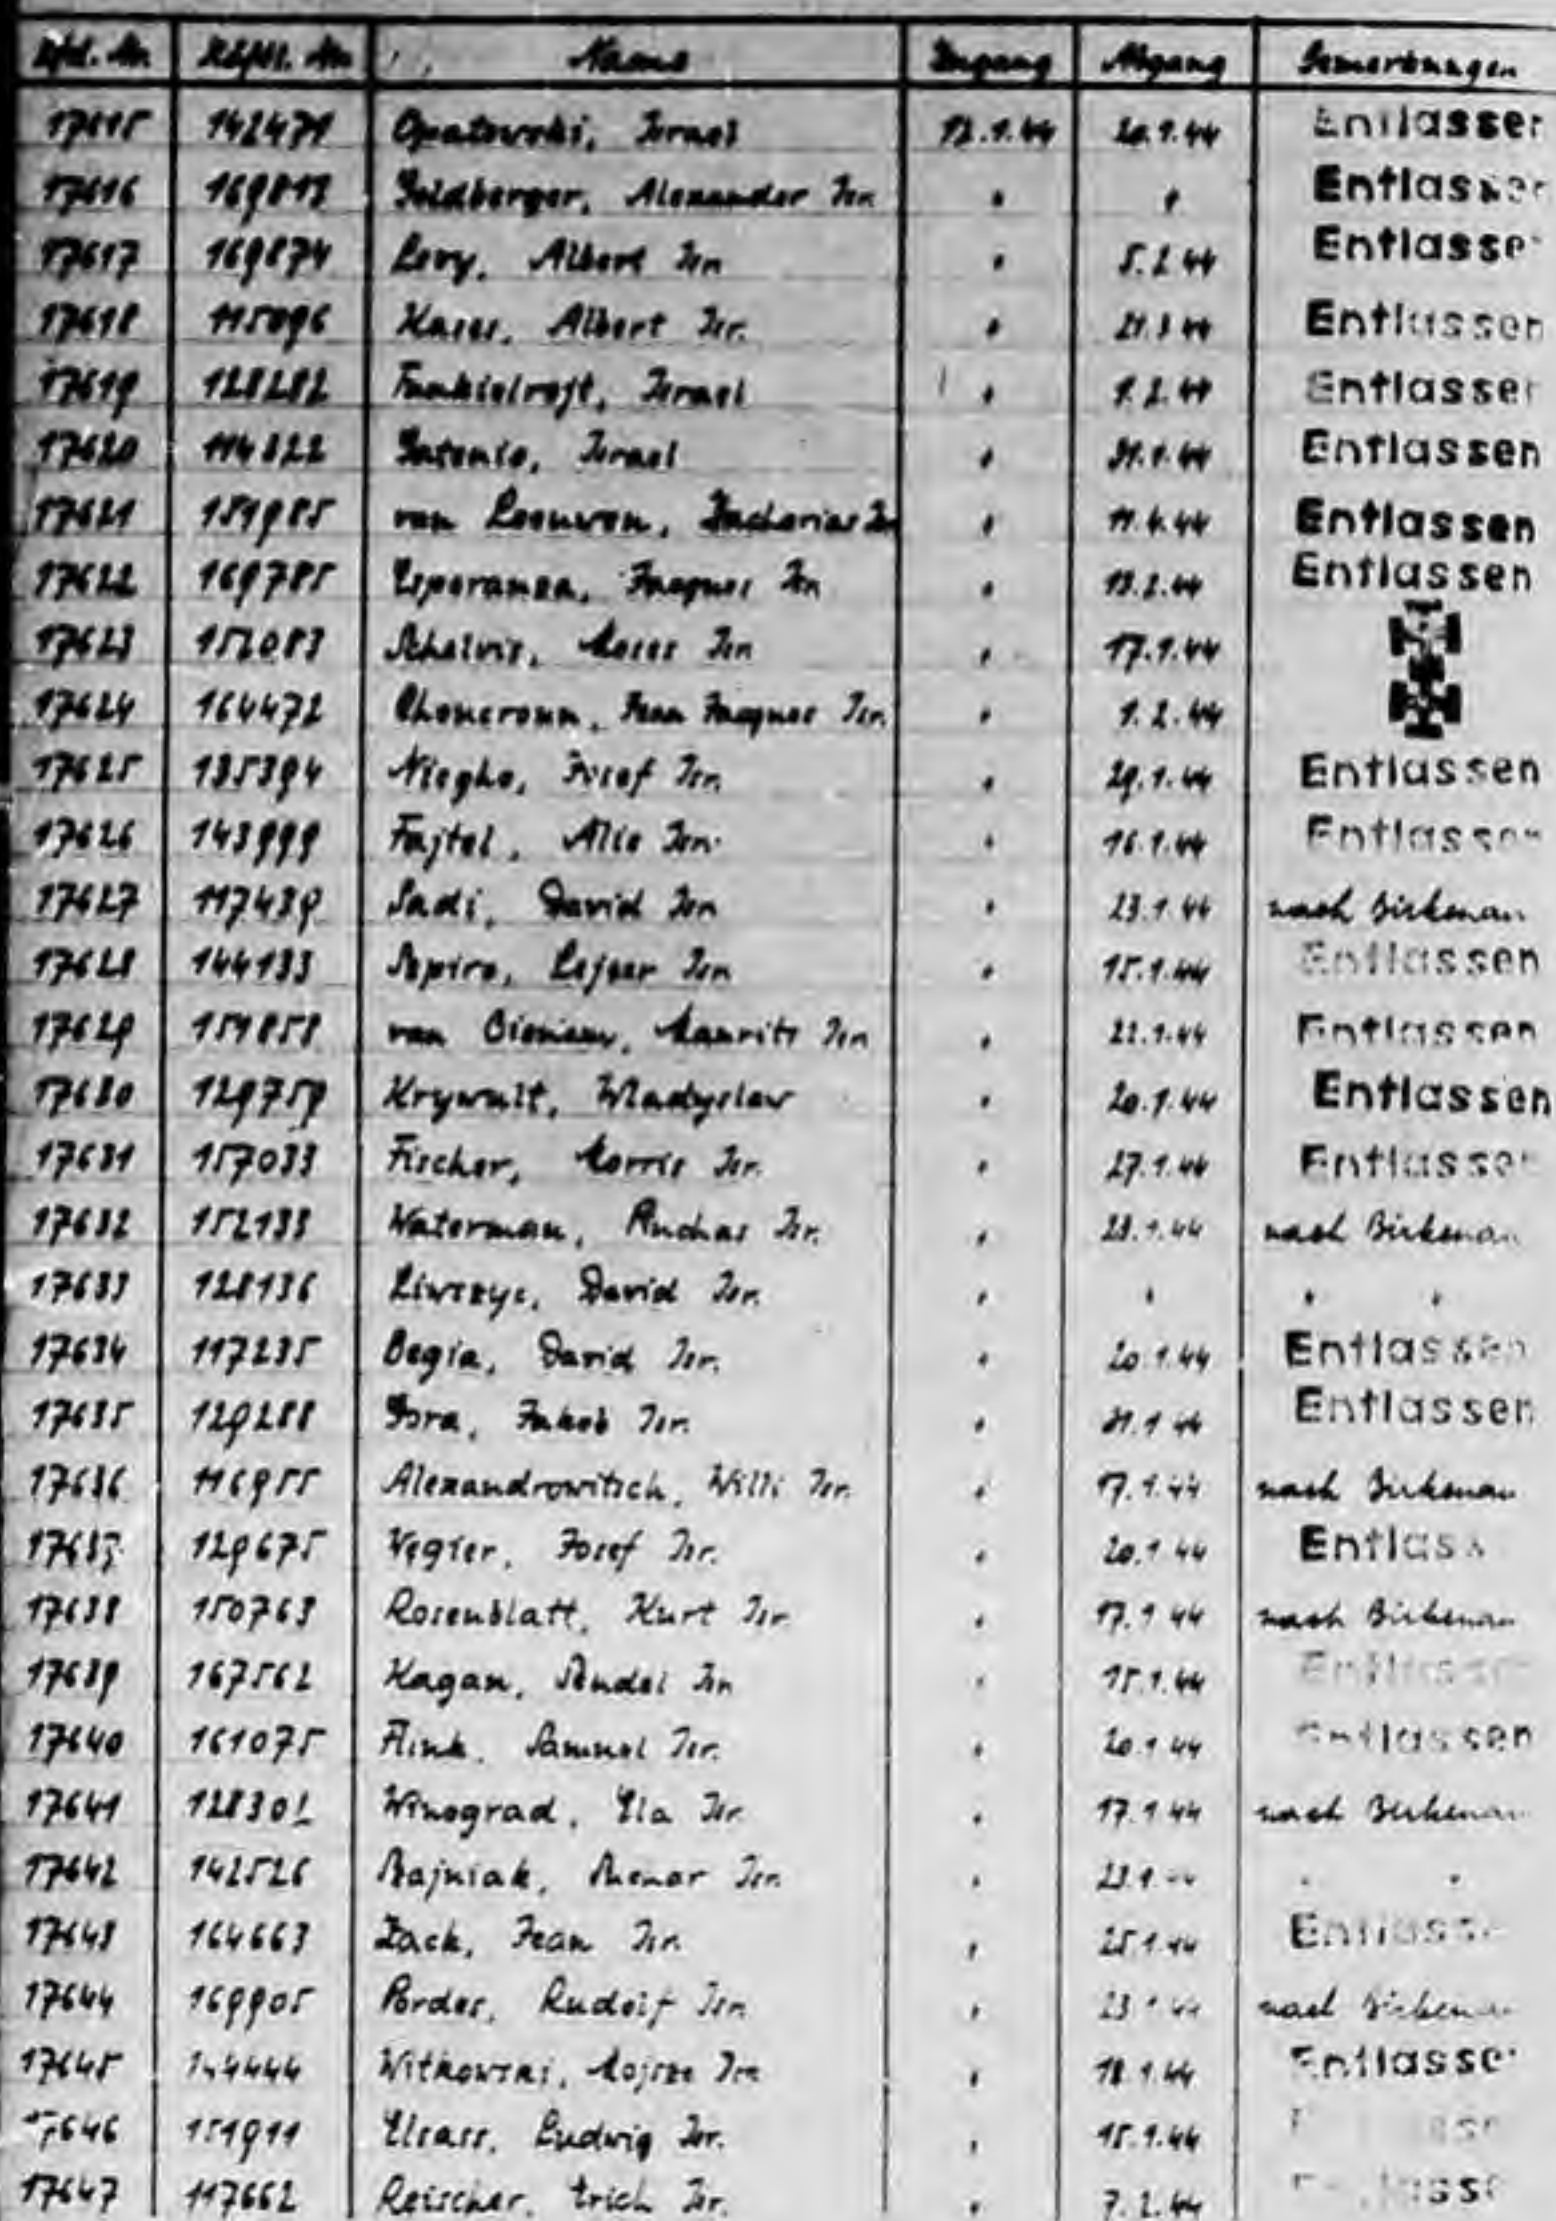 Lfd. Nr. Häftl. Nr. Name Zugang Abgang Bemerkungen
17615 142471 Opatowski, Israel 12.1.44 20.1.44 Entlassen
17616 169812 Goldberger, Alexander Isr. " " Entlassen
17617 169874 Levy, Albert Isr. " 5.2.44 Entlassen
17618 115096 Albert Isr. " 21.3.44 Entlassen
17619 128282 Israel " 1.2.44 Entlassen
17620 114822 Israel " 31.1.44 Entlassen
17621 151985 van Leeuwen, Zacharias Isr. " 11.4.44 Entlassen
17622 169785 Esperanza, Jacques Isr. " 13.2.44 Entlassen
17623 152083 Schelvis, Moses Isr. " 17.1.44
17624 164472 Choucroun, Jean Jacques Isr. " 1.2.44
17625 135394 Niegho, Josef Isr. " 29.1.44 Entlassen
17626 143999 Fajtel, Alie Isr. " 16.1.44 Entlassen
17627 117439 Sadi, David Isr. " 23.1.44 nach Birkenau
17628 144133 Szpiro, Lejzer Isr. " 15.1.44 Entlassen
17629 151858 van Maurits Isr. " 22.1.44 Entlassen
17630 129759 Krywult, Wladyslaw " 20.1.44 Entlassen
17631 157033 Fischer, Morris Isr. " 27.1.44 Entlassen
17632 152133 Waterman, Isr. " 23.1.44 nach Birkenau
17633 128136 Liwszyc, David Isr. " " " "
17634 117235 Begia, David Isr. " 20.1.44 Entlassen
17635 129288 Gora, Jakob Isr. " 31.1.44 Entlassen
17636 116955 Alexandrowitsch, Willi Isr. " 17.1.44 nach Birkenau
17637 129675 Wegier, Josef Isr. " 20.1.44 Entlass
17638 150763 Rosenblatt, Kurt Isr. " 17.1.44 nach Birkenau
17639 167562 Kagan, Sendel Isr. " 15.1.44 Entlassen
17640 161075 Flink, Samuel Isr. " 20.1.44 Entlassen
17641 128301 Winograd, Ela Isr. " 17.1.44 nach Birkenau
17642 142526 Isr. " 23.1.44 " "
17643 164663 Zack, Jean Isr. " 25.1.44 Entlassen
17644 169905 Pordes, Rudolf Isr. " 23.1.44 nach Birkenau
17645 144444 Witkowski, Mojsze Isr. " 18.1.44 Entlassen
17646 151911 Elsass, Ludwig Isr. " 15.1.44
17647 117662 Reischer, Erich Isr. " 7.2.44 Entlassen